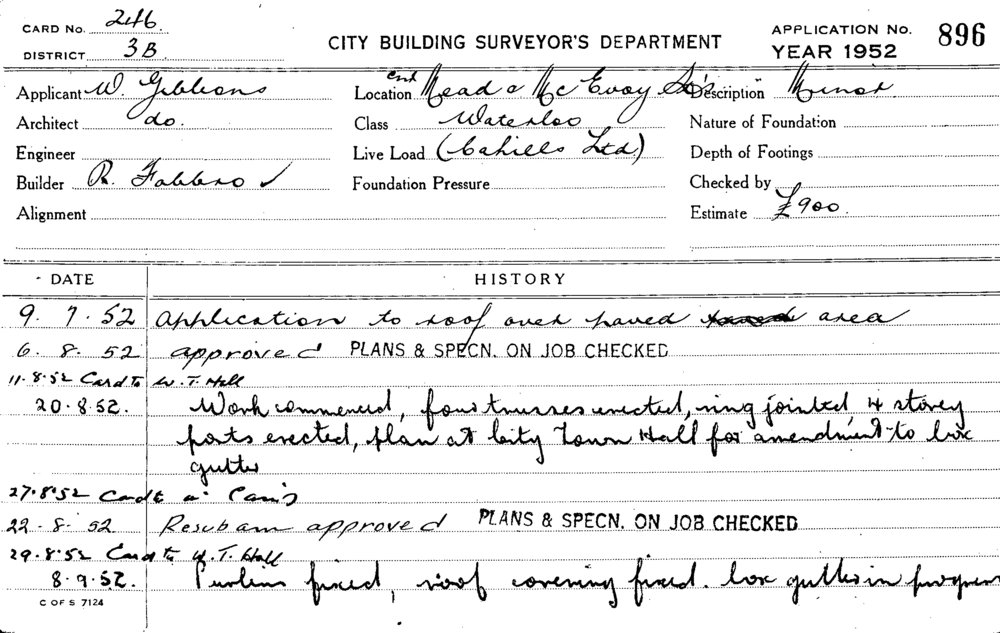 CARD No. 246.
DISTRICT 3B.
CITY BUILDING SURVEYOR'S DEPARTMENT
APPLICATION No. 896
YEAR 1952
Applicant W. Gibbons
Location Cnr Mead & McEvoy Sts
Description Minor
Architect do.
Class Waterloo
Nature of Foundation
Engineer
Live Load (Cahills Ltd)
Depth of Footings
Builder R. Fabbro ✓
Foundation Pressure
Checked by
Alignment
Estimate £900.
DATE HISTORY
9. 7. 52 Application to roof over paved area
6. 8. 52 approved PLANS & SPECN. ON JOB CHECKED
11.8.52 Card to W. T. Hall
20.8.52. Work commenced, four trusses erected, ring jointed, 4 storey
posts erected, plan at City Town Hall for amendment to box
gutter
27.8.52 Card to
22. 8. 52 Resub am approved PLANS & SPECN. ON JOB CHECKED
29.8.52 Card to W. T. Hall
8.9.52. Purlins fixed, roof covering fixed. box gutter in progress
C OF S 7124